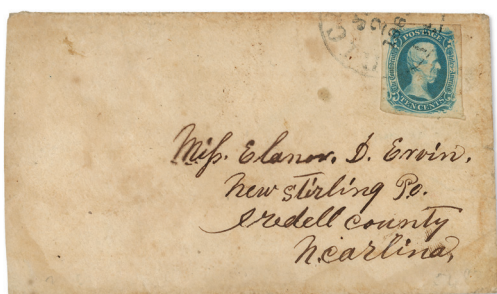 POSTAGE
TEN CENTS
Miss. Elanor. D. Ervin.
New stirling Po.
Iredell county
N. carlina,